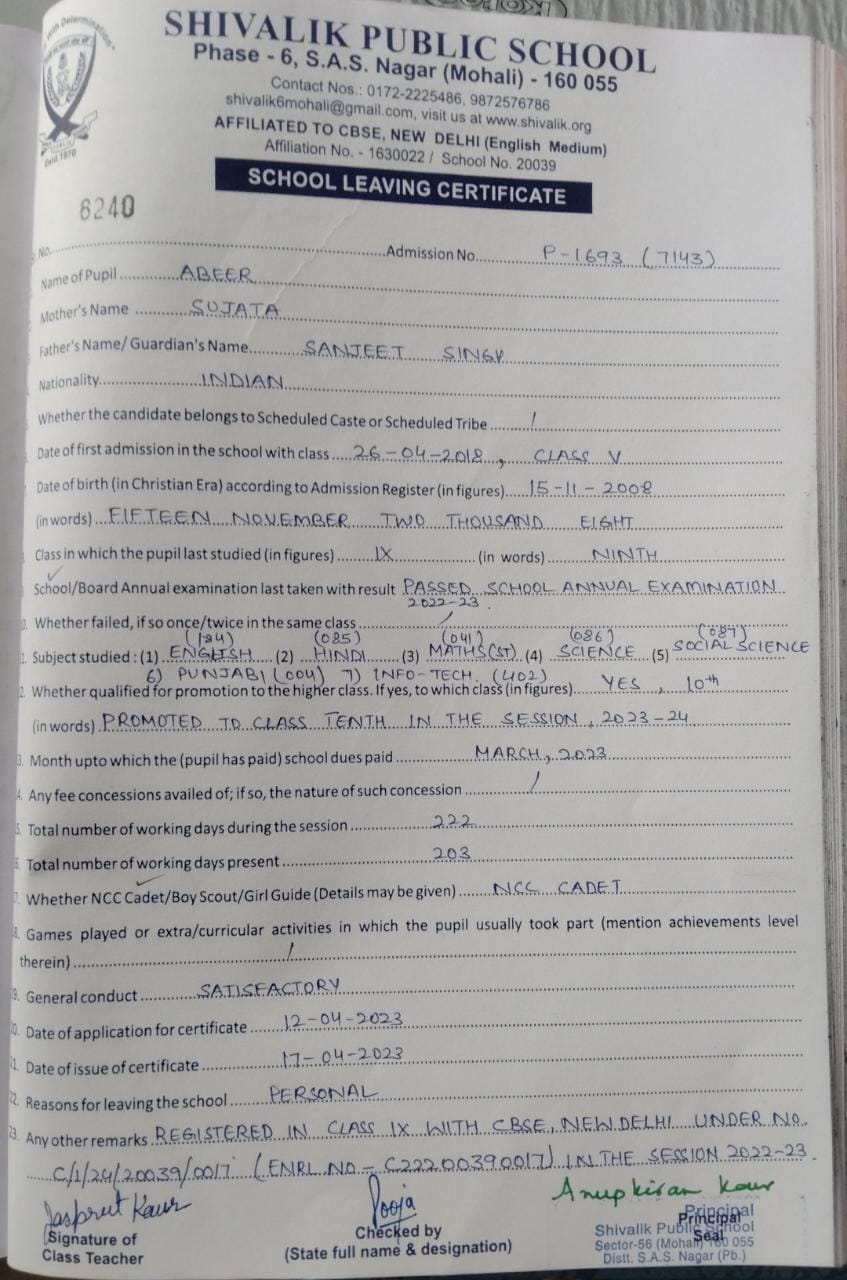 with Determination"
Estd. 1970
SHIVALIK PUBLIC SCHOOL
Phase - 6, S.A.S. Nagar (Mohali) - 160 055
Contact Nos.: 0172-2225486, 9872576786
shivalik6mohali@gmail.com, visit us at www.shivalik.org
AFFILIATED TO CBSE, NEW DELHI (English Medium)
Affiliation No. - 1630022 / School No. 20039
SCHOOL LEAVING CERTIFICATE
6240
No. Admission No. P-1693 (7143)
Name of Pupil ABEER
Mother's Name SUJATA
Father's Name/ Guardian's Name SANJEET SINGH
Nationality INDIAN
Whether the candidate belongs to Scheduled Caste or Scheduled Tribe /
Date of first admission in the school with class 26-04-2018, CLASS V
Date of birth (in Christian Era) according to Admission Register (in figures) 15-11-2008
(in words) FIFTEEN NOVEMBER TWO THOUSAND EIGHT
Class in which the pupil last studied (in figures) IX (in words) NINTH
School/Board Annual examination last taken with result PASSED SCHOOL ANNUAL EXAMINATION
2022-23.
Whether failed, if so once/twice in the same class /
(184) (085) (041) (086) (087)
1. Subject studied : (1) ENGLISH (2) HINDI (3) MATHS(ST) (4) SCIENCE (5) SOCIAL SCIENCE
6) PUNJABI (004) 7) INFO-TECH. (402)
2. Whether qualified for promotion to the higher class. If yes, to which class (in figures) YES, 10th
(in words) PROMOTED TO CLASS TENTH IN THE SESSION, 2023-24
3. Month upto which the (pupil has paid) school dues paid MARCH, 2023
4. Any fee concessions availed of; if so, the nature of such concession /
5. Total number of working days during the session 222
6. Total number of working days present 203
7. Whether NCC Cadet/Boy Scout/Girl Guide (Details may be given) NCC CADET
8. Games played or extra/curricular activities in which the pupil usually took part (mention achievements level
therein) /
9. General conduct SATISFACTORY
20. Date of application for certificate 12-04-2023
21. Date of issue of certificate 17-04-2023
22. Reasons for leaving the school PERSONAL
23. Any other remarks REGISTERED IN CLASS IX WITH CBSE, NEW DELHI UNDER NO.
C/1/24/20039/0017 (ENRL NO - C22200390017) IN THE SESSION 2022-23.
Jaspreet Kaur Pooja Anupkiran Kaur
Signature of
Class Teacher
Checked by
(State full name & designation)
Principal
Seal
Principal
Shivalik Public School
Sector-56 (Mohali) 160 055
Distt. S.A.S. Nagar (Pb.)